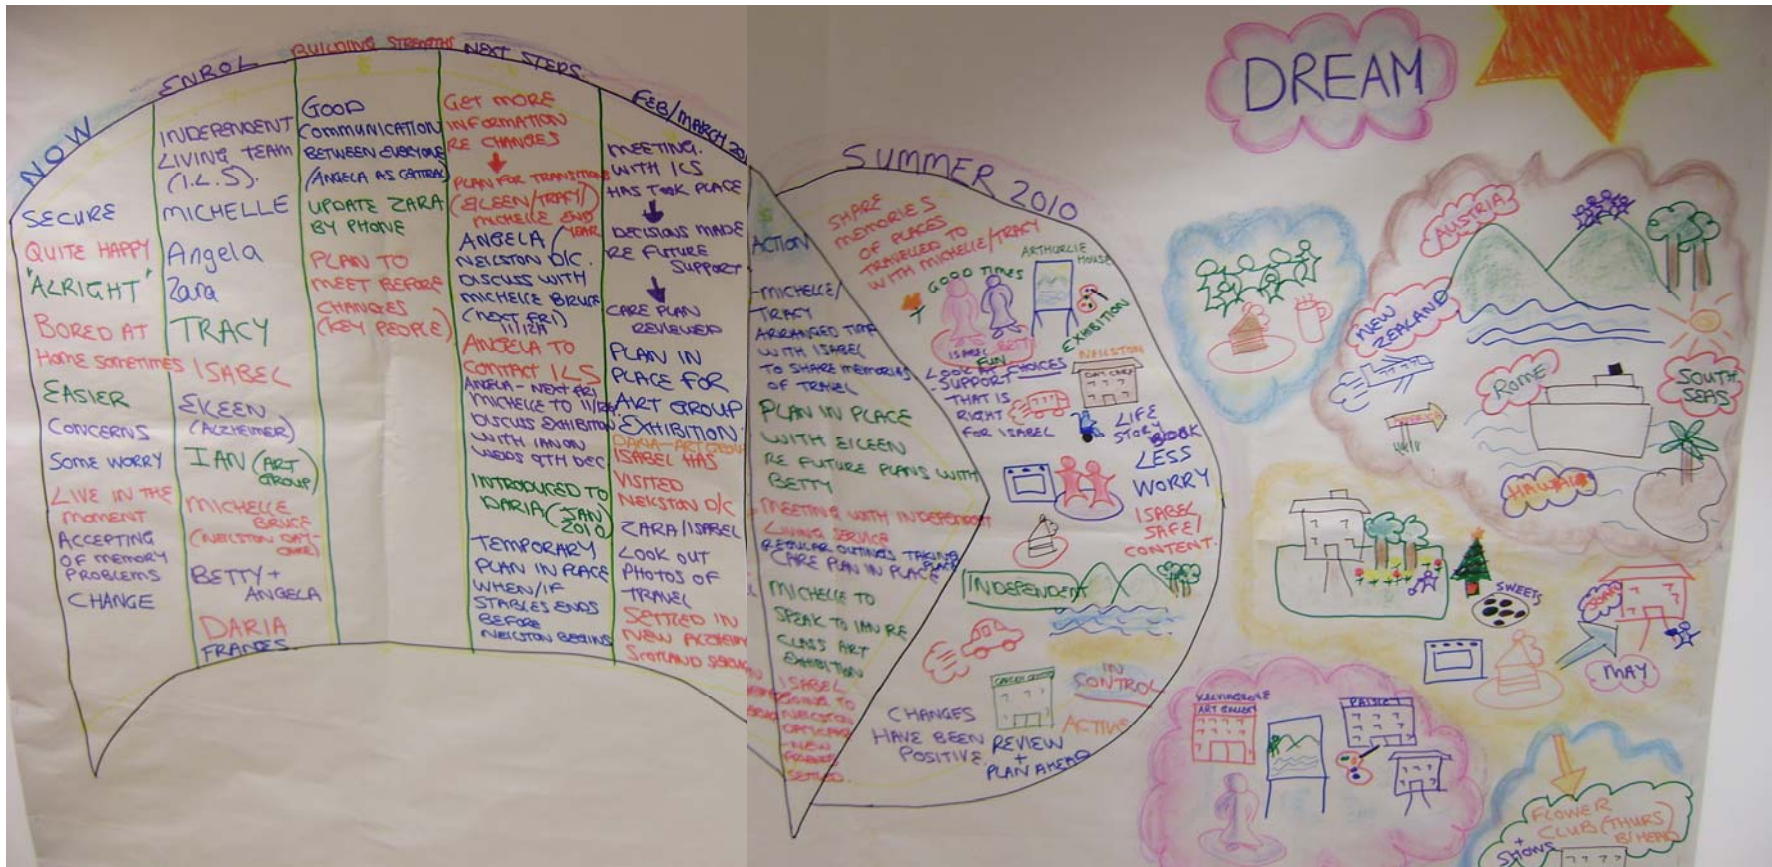 NOW
SECURE
QUITE HAPPY
"ALRIGHT"
BORED AT
HOME SOMETIMES
EASIER
CONCERNS
SOME WORRY
LIVE IN THE
MOMENT
ACCEPTING
OF MEMORY
PROBLEMS
CHANGE
ENROL
INDEPENDENT
LIVING TEAM
(I.L.S).
MICHELLE
Angela
Zara
TRACY
ISABEL
EILEEN
(ALZHEIMER)
IAN (ART
GROUP)
MICHELLE
BRUCE
(NEILSTON DAY-
CARE)
BETTY +
ANGELA
DARIA
FRANCES.
BUILDING STRENGTHS
GOOD
COMMUNICATION
BETWEEN EVERYONE
(ANGELA AS CENTRAL)
UPDATE ZARA
BY PHONE
PLAN TO
MEET BEFORE
CHANGES
(KEY PEOPLE)
NEXT STEPS
GET MORE
INFORMATION
RE CHANGES
PLAN FOR TRANSITIONS
(EILEEN/TRACY/)
MICHELLE END
YEAR
ANGELA/
NEILSTON D/C.
DISCUSS WITH
MICHELLE BRUCE
(NEXT FRI)
11/12/
ANGELA TO
CONTACT ILS
ANGELA - NEXT FRI
MICHELLE TO 11/12
DISCUSS EXHIBITION
WITH IAN ON
WEDS 9TH DEC
INTRODUCED TO
DARIA (JAN
2010)
TEMPORARY
PLAN IN PLACE
WHEN/IF
STABLES ENDS
BEFORE
NEILSTON BEGINS
FEB/MARCH 20
MEETING.
WITH ICS
HAS TOOK PLACE
DECISIONS MADE
RE FUTURE
SUPPORT
CARE PLAN
REVIEWED
PLAN IN
PLACE FOR
ART GROUP
EXHIBITION.
DARIA-ART GROUP
ISABEL HAS
VISITED
NEILSTON D/C
ZARA/ISABEL
LOOK OUT
PHOTOS OF
TRAVEL
SETTLED IN
NEW ALZHEIM
SCOTLAND
ACTION
-MICHELLE/
TRACY
ARRANGED TIME
WITH ISABEL
TO SHARE MEMORIES
OF TRAVEL
PLAN IN PLACE
WITH EILEEN
RE FUTURE PLANS WITH
BETTY
MEETING WITH INDEPENDENT
LIVING SERVICE
REGULAR OUTINGS TAKING
PLACE
CARE PLAN IN PLACE
MICHELLE TO
SPEAK TO IAN RE
CLASS ART
EXHIBITION
ISABEL
GOING TO
NEILSTON
DAYCARE
-NEW
SETTLED.
SUMMER 2010
SHARE
MEMORIES
OF PLACES
TRAVELLED TO
WITH MICHELLE/TRACY
GOOD TIMES
ARTHURLIE
HOUSE
EXHIBITION
ISABEL BETTY
FUN
LOOK AT CHOICES
-SUPPORT
-THAT IS
RIGHT
FOR ISABEL
NEILSTON
DAY CARE
LIFE
STORY BOOK
LESS
WORRY
ISABEL
SAFE/
CONTENT.
INDEPENDENT
GARDEN CENTRE
IN
CONTROL
ACTIVE
CHANGES
HAVE BEEN
POSITIVE
REVIEW
+
PLAN AHEAD
DREAM
AUSTRIA
NEW
ZEALAND
ROME
SOUTH
SEAS
HAWAII
SWEETS
SPAIN
MAY
KELVINGROVE
ART GALLERY
PAISLEY
FLOWER
CLUB (THURS
B/HEAD
+
SHOWS